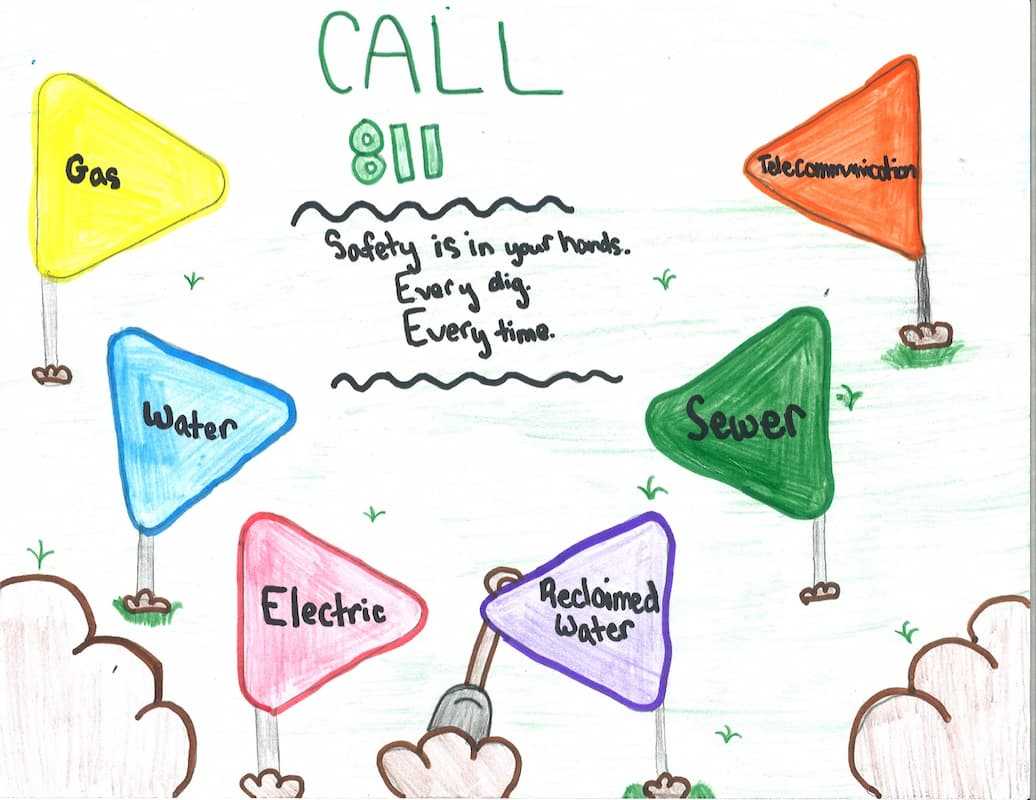 CALL
811
Safety is in your hands.
Every dig.
Every time.
Gas
Telecommunication
Water
Sewer
Electric
Reclaimed
Water